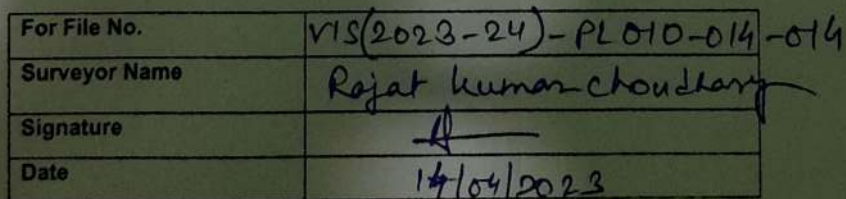 For File No. VIS(2023-24)-PL010-014-014
Surveyor Name Rajat kumar choudhary
Signature
Date 14/04/2023